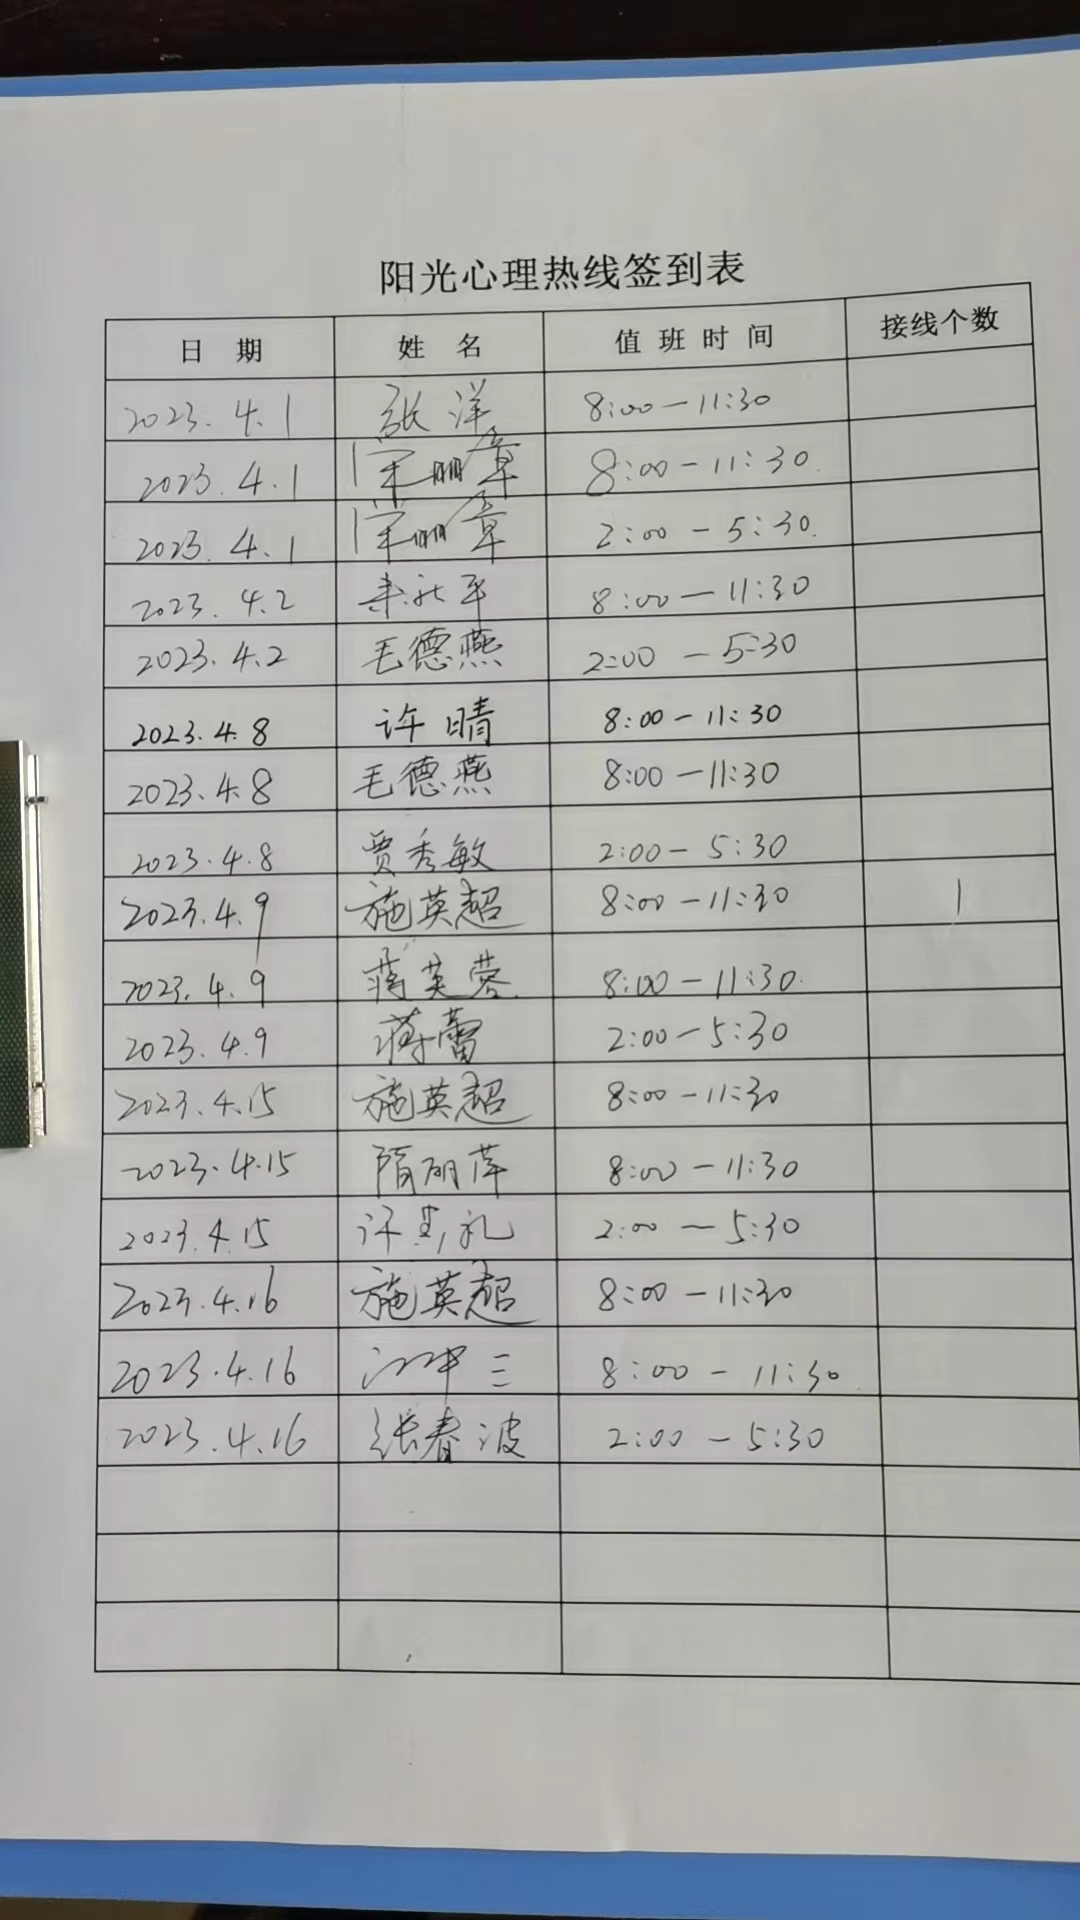 阳光心理热线签到表
日 期 姓 名 值 班 时 间 接线个数
2023.4.1 张洋 8:00-11:30
2023.4.1 8:00-11:30
2023.4.1 2:00-5:30
2023.4.2 8:00-11:30
2023.4.2 毛德燕 2:00-5:30
2023.4.8 许晴 8:00-11:30
2023.4.8 毛德燕 8:00-11:30
2023.4.8 贾秀敏 2:00-5:30
2023.4.9 施英超 8:00-11:30 1
2023.4.9 蒋芙蓉 8:00-11:30
2023.4.9 蒋蕾 2:00-5:30
2023.4.15 施英超 8:00-11:30
2023.4.15 隋丽萍 8:00-11:30
2023.4.15 2:00-5:30
2023.4.16 施英超 8:00-11:30
2023.4.16 8:00-11:30
2023.4.16 张春波 2:00-5:30